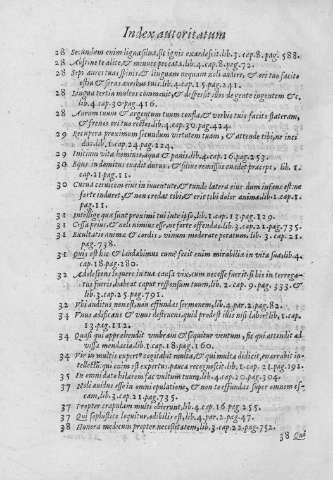 Index autoritatum
28 Secundum enim ligna silua, sic ignis exardescit. lib. 3. cap. 8. pag. 588.
28 Abstine te a lite, & minues peccata. lib. 4. cap. 8. pag. 72.
28 Sepi aures tuas spinis, & linguam nequam noli audire, & ori tuo facito
ostia & seras auribus tuis. lib. 4. cap. 15. pag. 241.
28 Lingua tertia multos commouit, & dispersit illos de gente in gentem &c.
lib. 4. cap. 30 pag. 416.
28 Aurum tuum & argentum tuum confla, & verbis tuis facito stateram,
& frenos ori tuo rectos. lib. 4. cap. 30. pag. 424.
29 Recupera proximum secundum virtutem tuam, & attende tibi, ne inci
das. lib. 1. cap. 24. pag. 124.
29 Initium vita hominis, aqua & panis. lib. 4. cap. 16. pag. 253.
30 Equus indomitus euadit durus, & filius remissus euadet præceps, lib. 1.
cap. 21. pag. 11.
30 Curua ceruicem eius in iuuentute, & tunde latera eius dum infans est, ne
forte induret, & non credat tibi, & erit tibi dolor animæ. lib. 1. cap. 1.
pag. 11.
31 Intellige quæ sunt proximi tui inte ipso. lib. 1. cap. 13. pag. 129.
31 Cessa prius, & noli nimius esse, ne forte offendas. lib. 3. cap. 21. pag. 735.
31 Exultatio animæ & cordis, vinum moderate potatum. lib. 3. cap. 21.
pag. 738.
31 Quis est hic & laudabimus eum? fecit enim mirabilia in vita sua, lib. 4.
cap. 18. pag. 280.
32 Adolescens loquere in tua causa vix, cum necesse fuerit, si bis interroga-
tus fueris habeat caput responsum tuum, lib. 2. cap. 9. pag. 333. &
lib. 3. cap. 25. pag. 791.
32 Vbi auditus non est, non effundas sermonem, lib. 4. par. 2. pag. 82.
34 Vnus ædificans & vnus destruens, quid prodest illis nisi labor? lib. 1. cap.
13. pag. 112.
34 Quasi qui apprehendit vmbram & sequitur ventum, sic qui attendit ad
visa mendacia. lib. 1. cap. 18. pag. 160.
34 Vir in multis expertus cogitabit multa, & qui multa didicit, enarrabit in-
tellectũ: qui enim est expertus, pauca recognoscit. lib. 1. cap. 21. pag. 191.
35 In omni dato hilarem fac vultum tuum, lib. 4. cap. 20. pag. 304.
37 Noli auidus esse in omni epulatione, & non te effundas super omnem es-
cam, lib. 3. cap. 21. pag. 735.
37 Propter crapulam multi obierunt, lib. 4. cap. 16. pag. 255.
37 Qui sophistice loquitur, odibilis est, lib. 4. par. 2. pag. 47.
38 Honora medicum propter necessitatem, lib. 3. cap. 22. pag. 752.
38 Qui